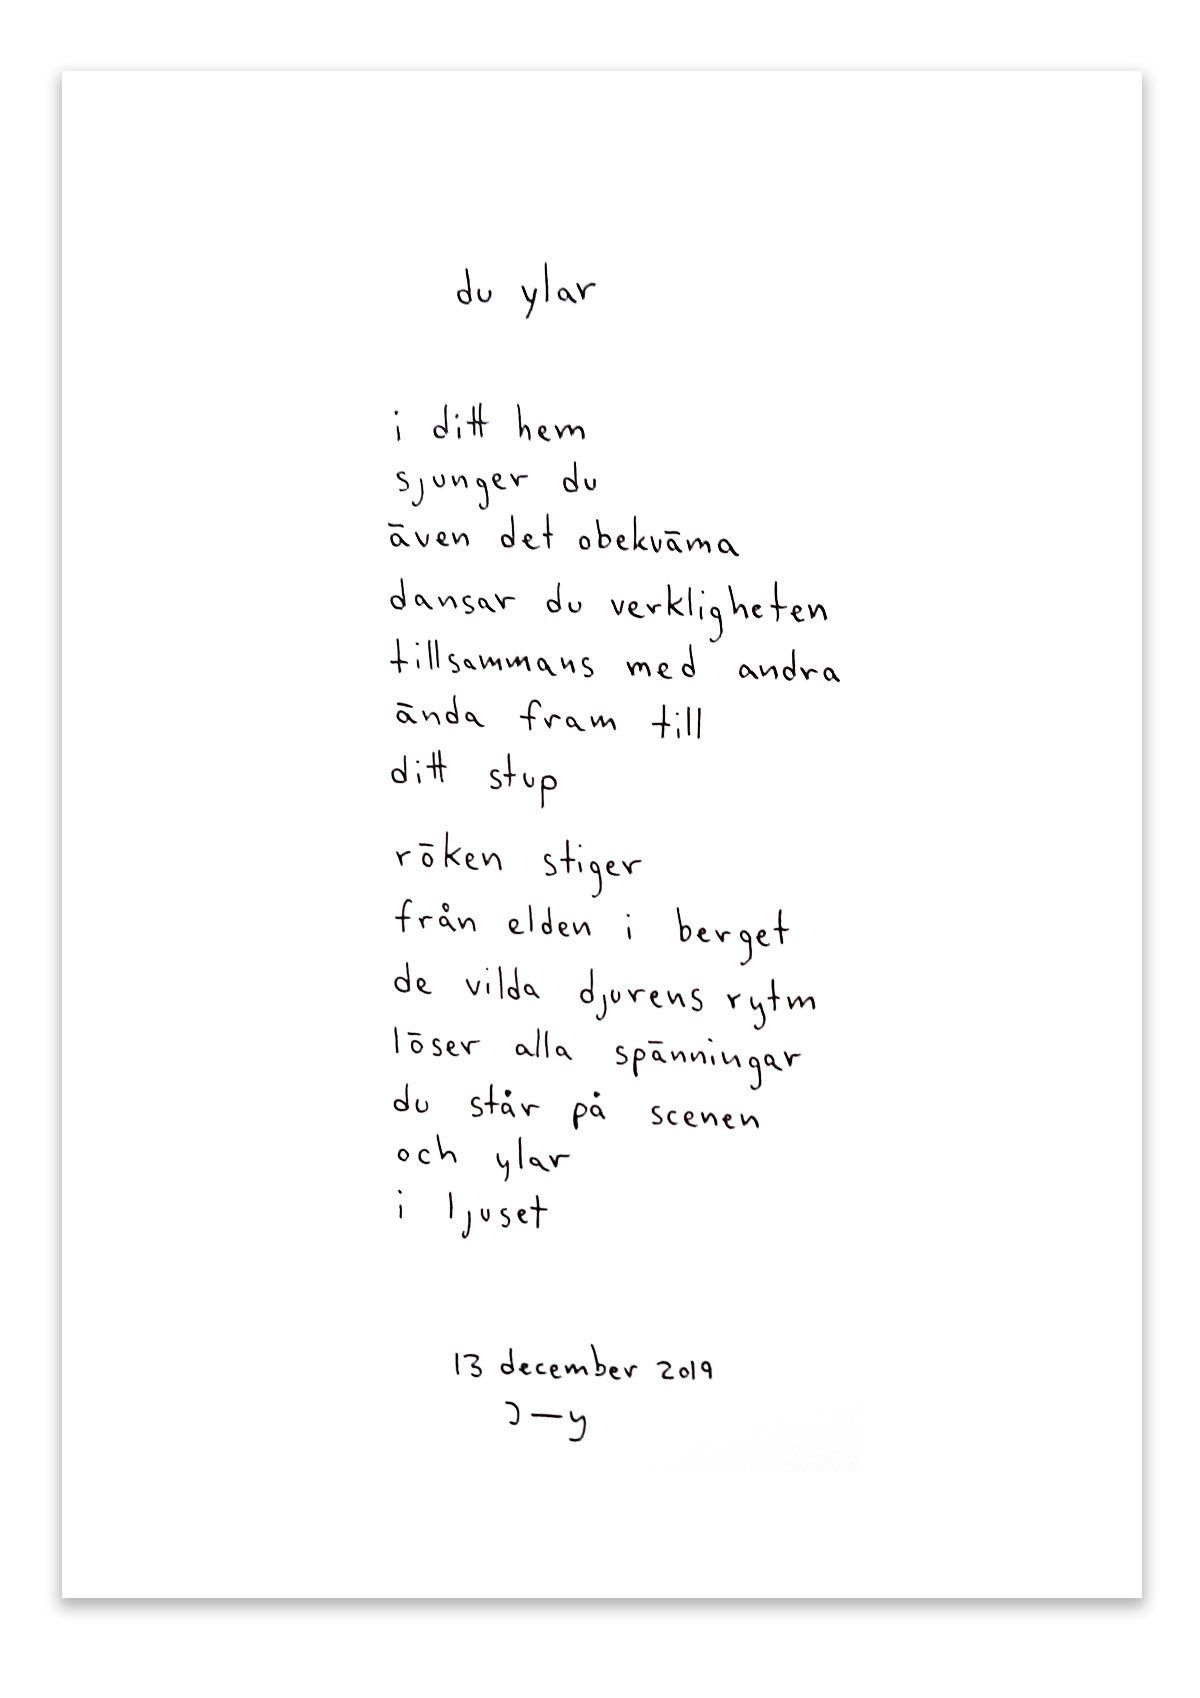 du ylar
i ditt hem
sjunger du
även det obekväma
dansar du verkligheten
tillsammans med andra
ända fram till
ditt stup
röken stiger
från elden i berget
de vilda djurens rytm
löser alla spänningar
du står på scenen
och ylar
i ljuset
13 december 2019
J—y